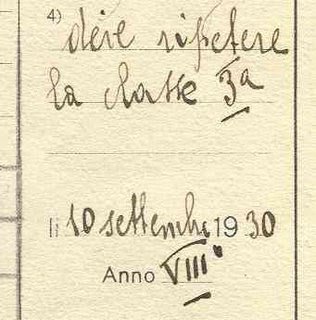 4) deve ripetere
la classe 3ª
li 10 settembre 1930
Anno VIII°